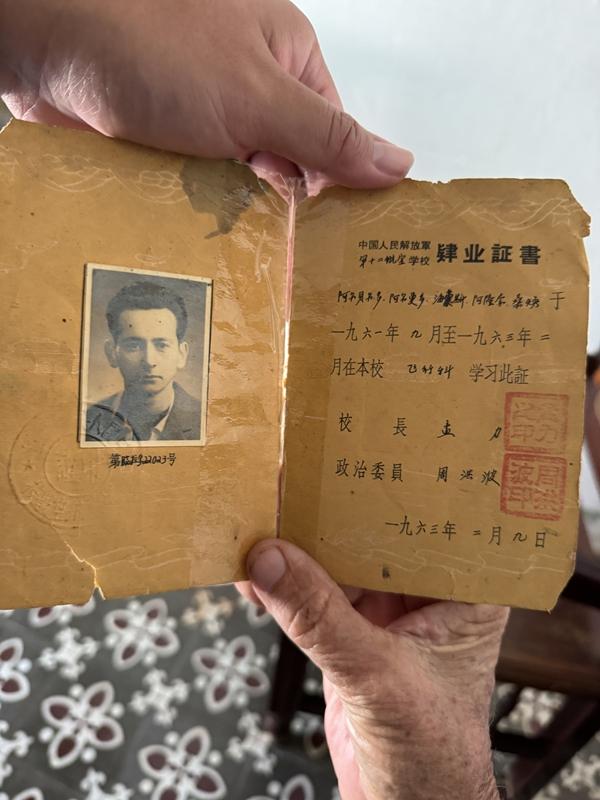 第臨肄22023号
中国人民解放軍
第十二航空学校 肄业証書
阿尔贝尔多.阿尔更多.油賽斯.阿隆 于
一九六一年 九 月至一九六三年 二
月在本校 飞行科 学习此証
校 長 力
政治委員 周洪波
周洪波印
一九六三年 二 月 九 日